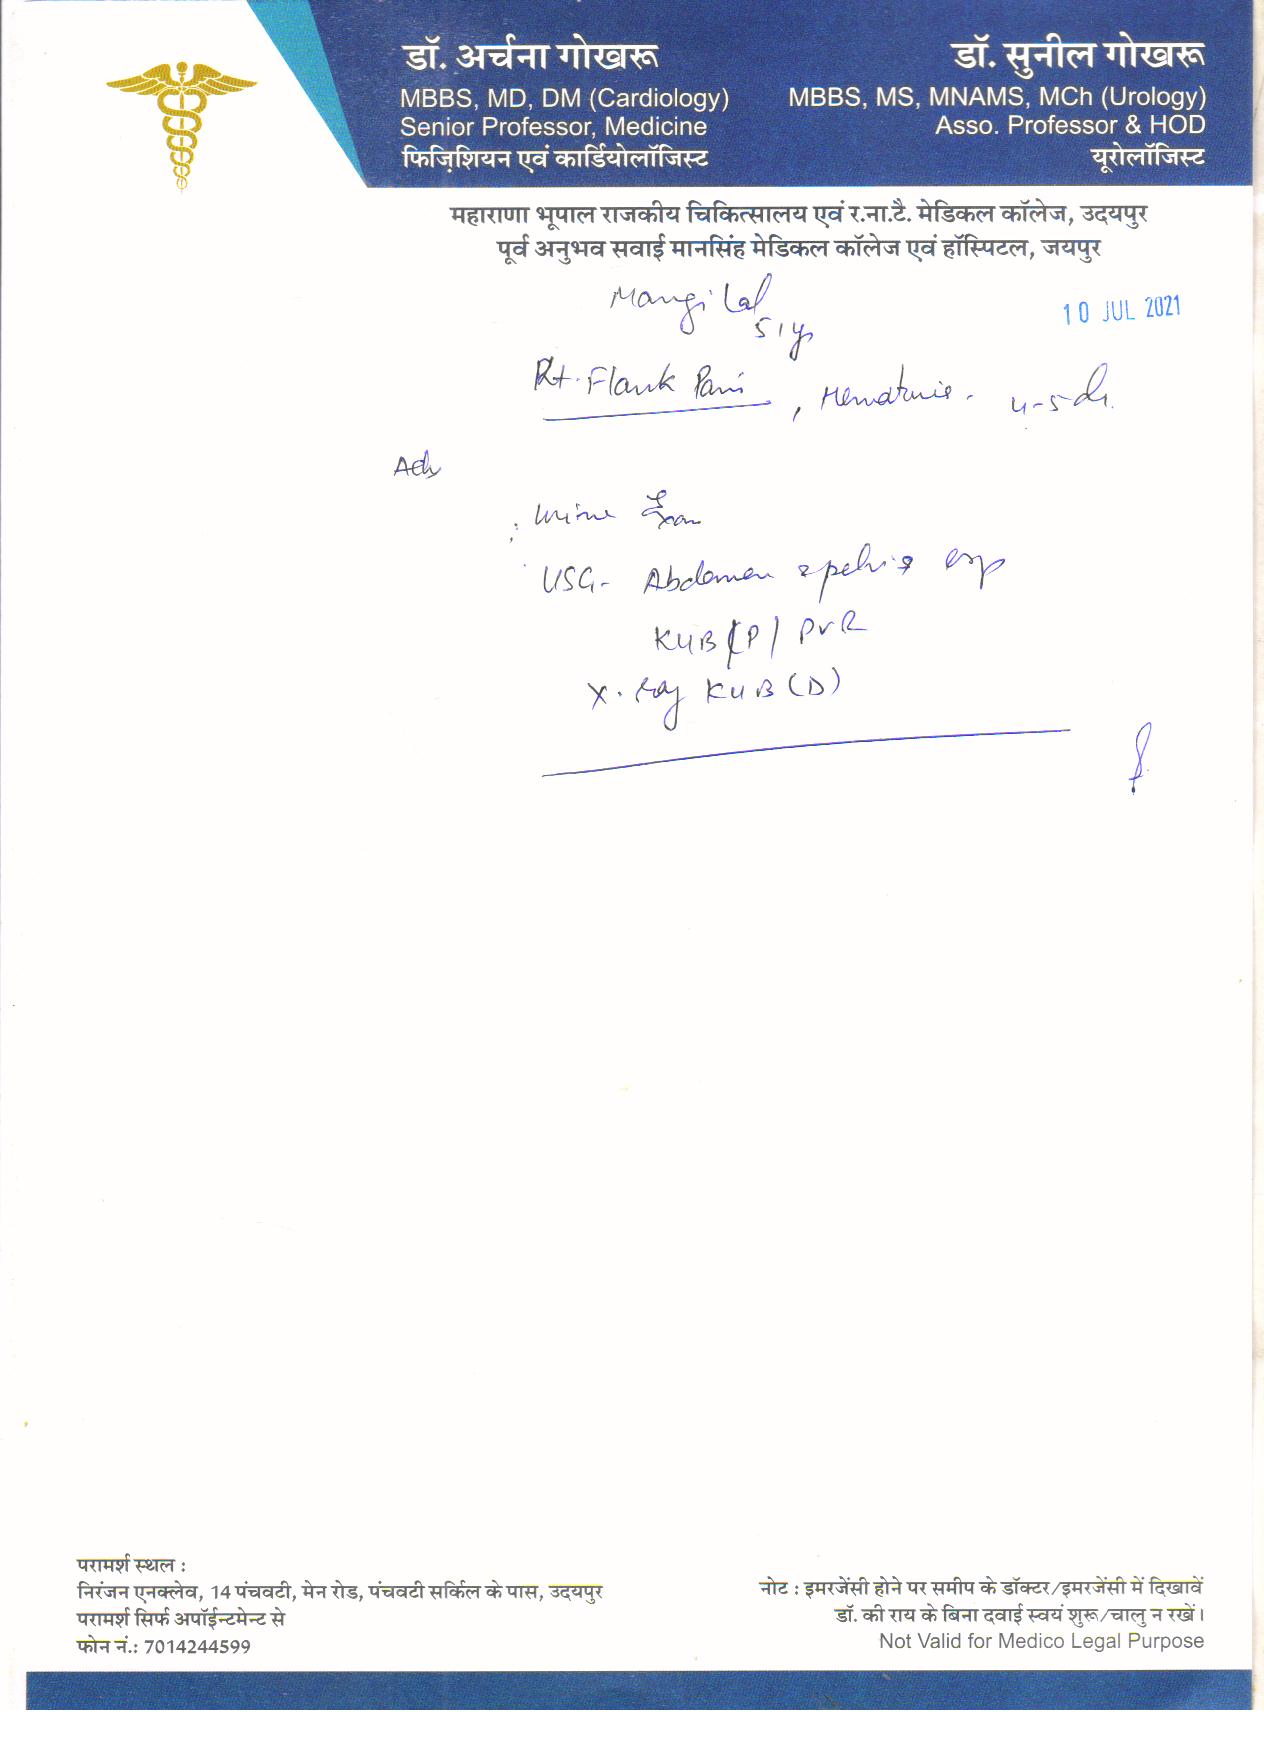 डॉ. अर्चना गोखरू
MBBS, MD, DM (Cardiology)
Senior Professor, Medicine
फिज़िशियन एवं कार्डियोलॉजिस्ट
डॉ. सुनील गोखरू
MBBS, MS, MNAMS, MCh (Urology)
Asso. Professor & HOD
यूरोलॉजिस्ट
महाराणा भूपाल राजकीय चिकित्सालय एवं र.ना.टै. मेडिकल कॉलेज, उदयपुर
पूर्व अनुभव सवाई मानसिंह मेडिकल कॉलेज एवं हॉस्पिटल, जयपुर
Mangi Lal
51y
10 JUL 2021
Rt. Flank Pain, Hematuria. 4-5 d.
Adv
Urine Exam
USG- Abdomen & pelvis esp
KUB (P) PVR
X-ray KUB (D)
परामर्श स्थल :
निरंजन एनक्लेव, 14 पंचवटी, मेन रोड, पंचवटी सर्किल के पास, उदयपुर
परामर्श सिर्फ अपॉईन्टमेन्ट से
फोन नं.: 7014244599
नोट : इमरजेंसी होने पर समीप के डॉक्टर/इमरजेंसी में दिखावें
डॉ. की राय के बिना दवाई स्वयं शुरू/चालु न रखें।
Not Valid for Medico Legal Purpose